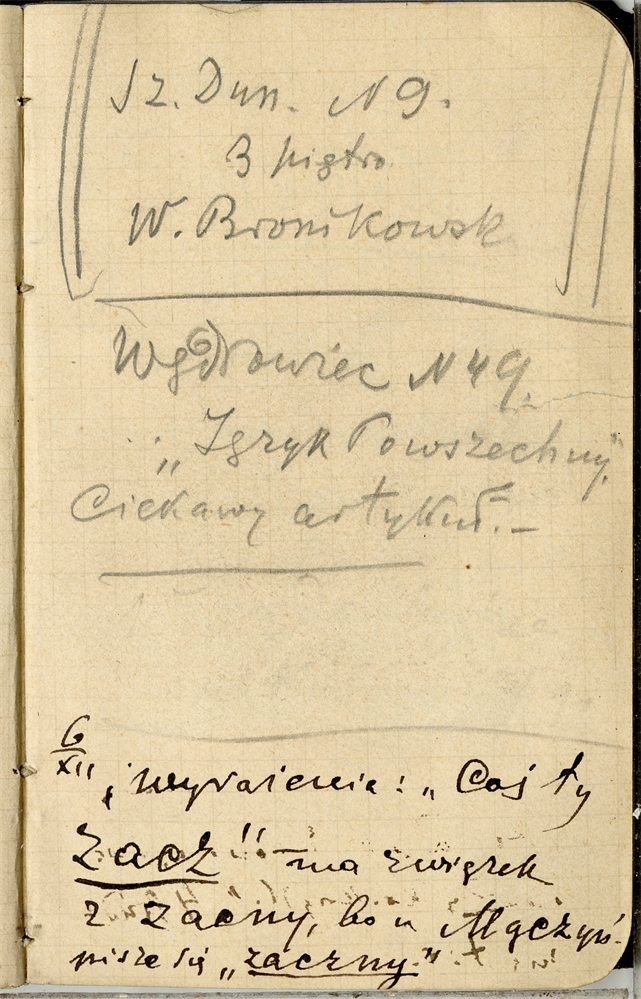 Sz. Dun. N 9.
3 piętro
W. Bronikowsk
Wędrowiec N 49.
„Język Powszechny”.
Ciekawy artykuł. –
6/XII, wyrażenie: „Coś ty
zacz” – ma związek
z zacny, bo u Mączyń.
pisze się „zaczny.”